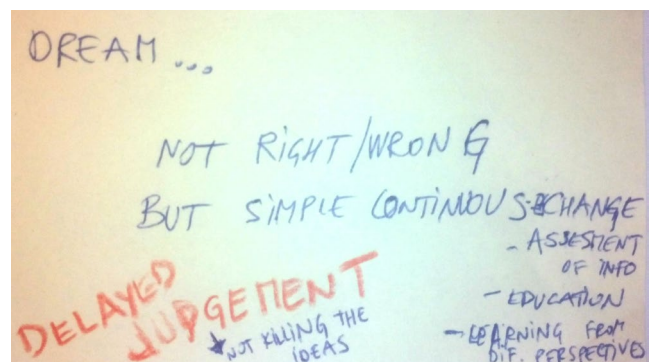 DREAM...
NOT RIGHT/WRONG
BUT SIMPLE CONTINUOUS EXCHANGE
- ASSESMENT
OF INFO
- EDUCATION
- LEARNING FROM
DIF. PERSPECTIVES
DELAYED
JUDGEMENT
NOT KILLING THE
IDEAS